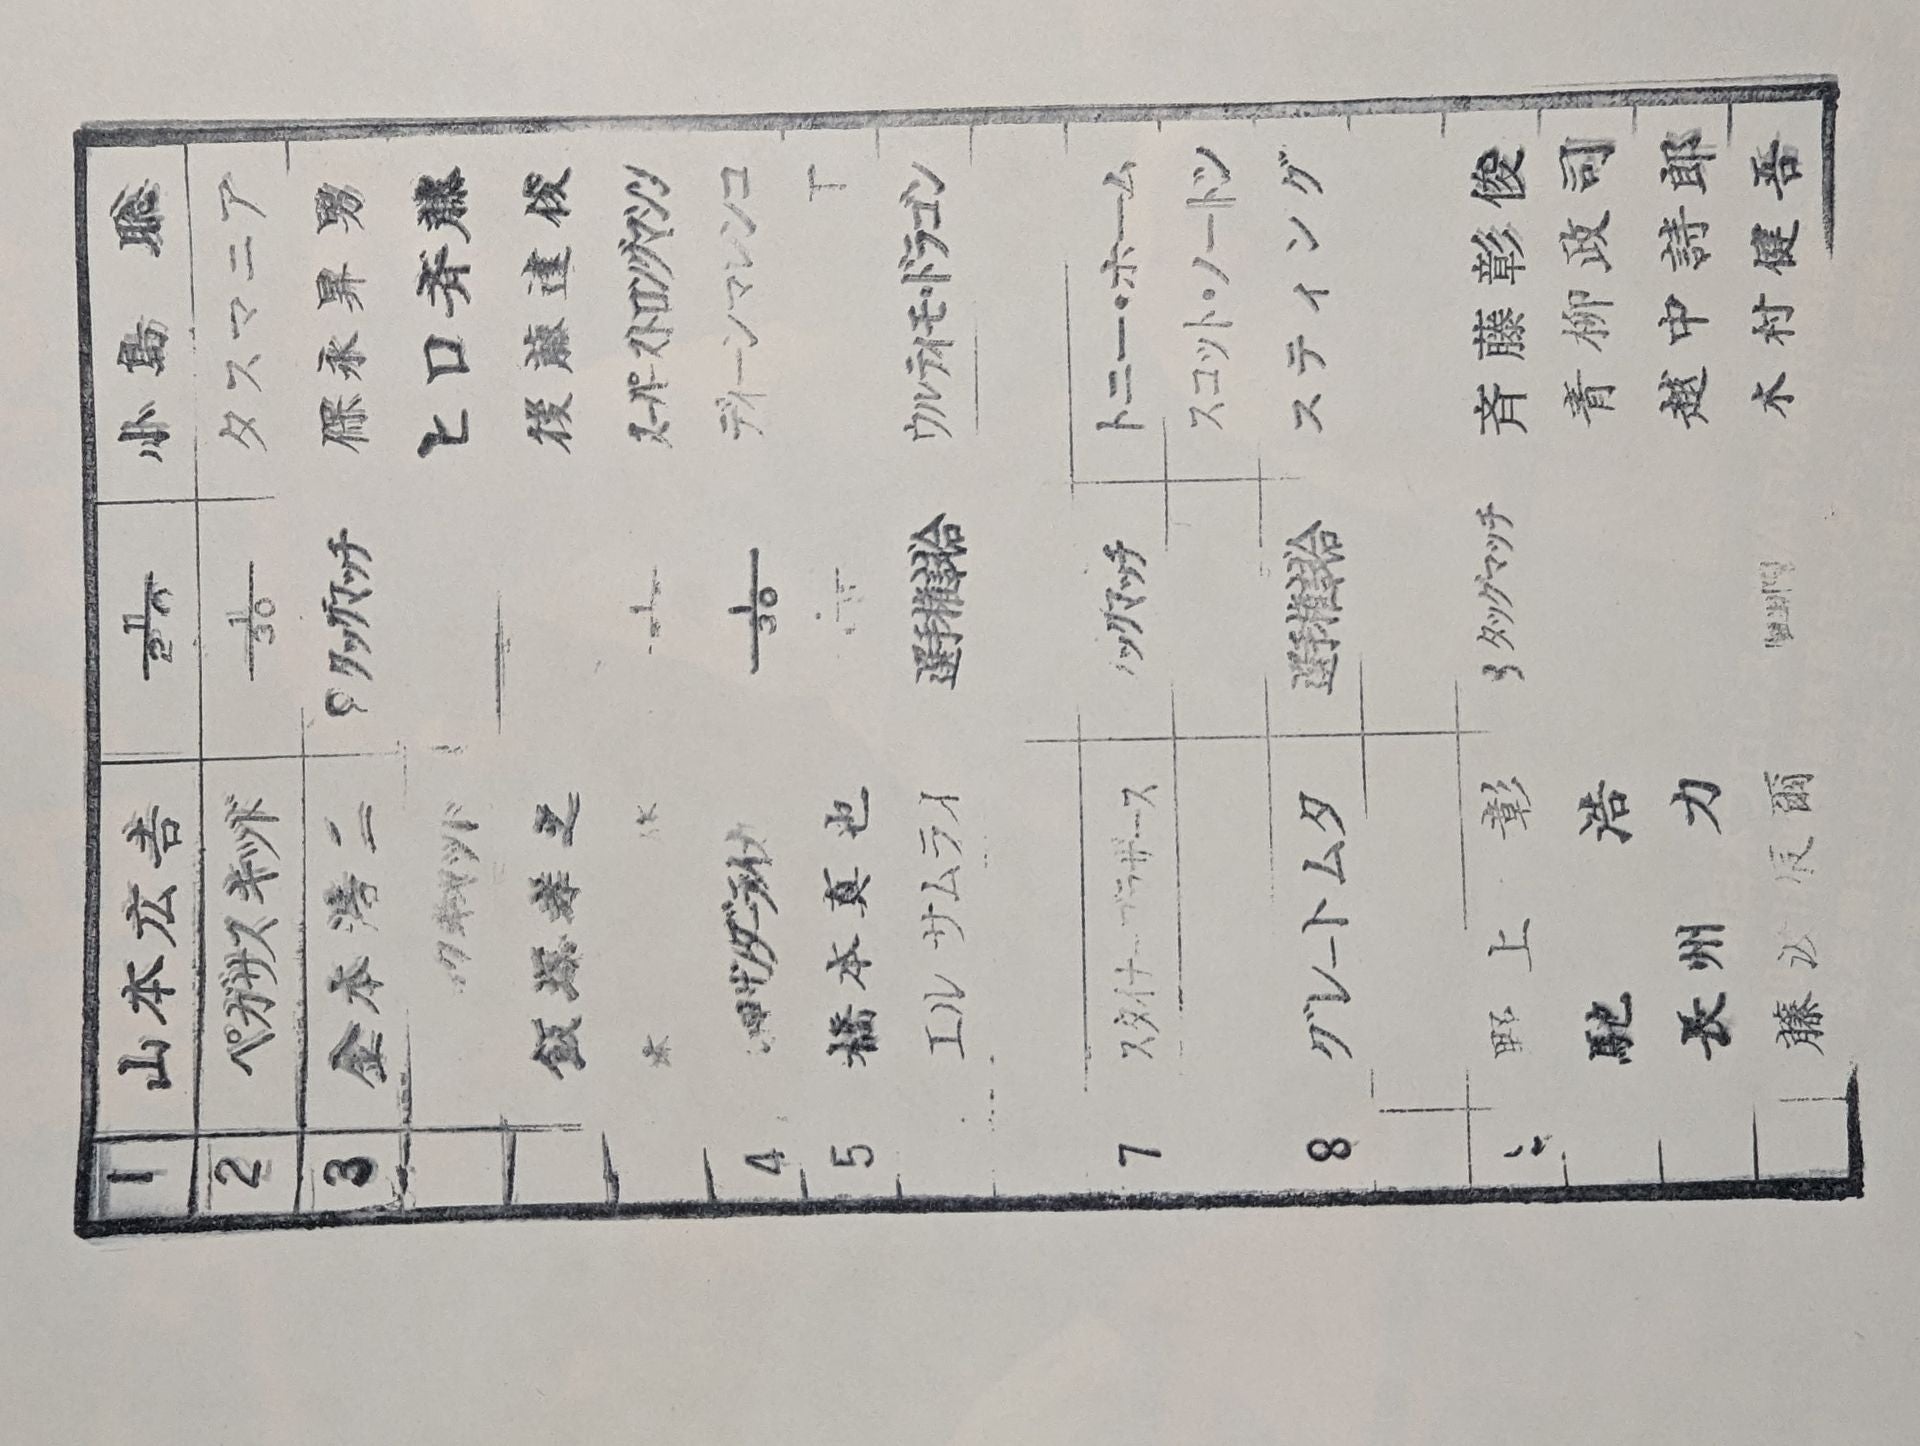 1 山本広吉 1/20 小島聡
2 ペガサスキッド 1/30 タスマニア
3 金本浩二 タッグマッチ 保永昇男
ヒロ斉藤
飯塚孝之 後藤達俊
スーパーストロングマシン
4 サンダーライガ 1/30 ディーンマレンコ
5 橋本真也 T
エルサムライ 選手権試合 ウルティモ・ドラゴン
7 スタイナーブラザース ッグマッチ トニー・ホーム
スコット・ノートン
8 グレートムタ 選手権試合 スティング
野上彰 タッグマッチ 斉藤彰俊
馳浩 青柳政司
長州力 越中詩郎
藤波辰爾 木村健吾